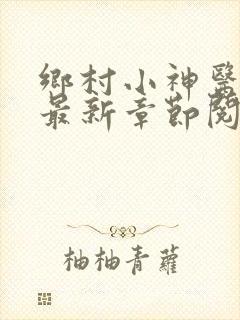 鄉村小神醫
最新章節閱
柚柚青蘿